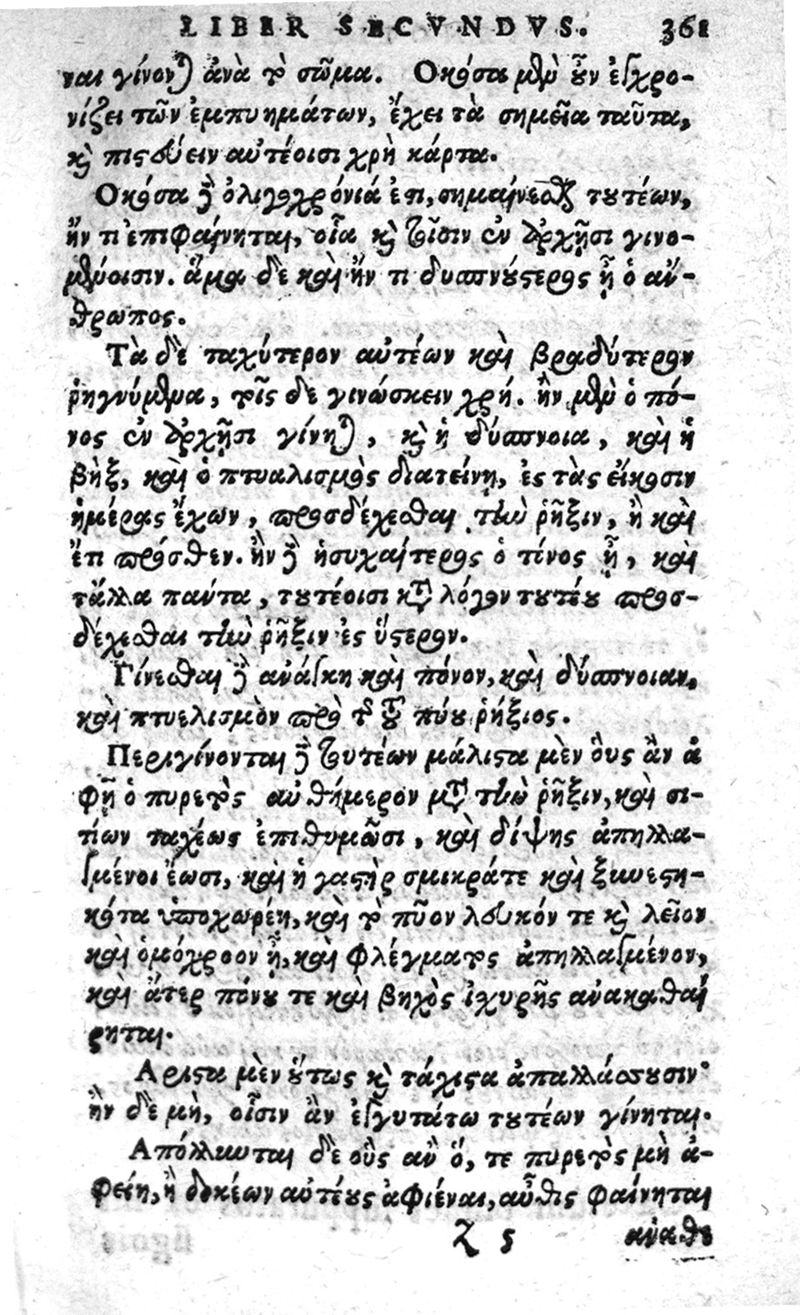 LIBER SECVNDVS. 361
ναι γίνονται ἀνὰ τὸ σῶμα. Οκόσα μὲν οὖν ἐγχρο-
νίζει τῶν ἐμπυημάτων, ἔχει τὰ σημεῖα ταῦτα,
καὶ πιστεύειν αὐτέοισι χρὴ κάρτα.
Οκόσα δὲ ὀλιγοχρόνιά ἐστι, σημαίνεσθαι τουτέων,
ἤν τι ἐπιφαίνηται, οἷα καὶ τοῖσιν ἐν ἀρχῆσι γινο-
μένοισιν. ἅμα δὲ καὶ ἤν τι δυσπνούστερος ᾖ ὁ ἄν-
θρωπος.
Τὰ δὲ ταχύτερον αὐτέων καὶ βραδύτερον
ῥηγνύμενα, τοῖς δὲ γινώσκειν χρή. ἢν μὲν ὁ πό-
νος ἐν ἀρχῆσι γίνηται, καὶ ἡ δύσπνοια, καὶ ἡ
βὴξ, καὶ ὁ πτυαλισμὸς διατείνῃ, ἐς τὰς εἴκοσιν
ἡμέρας ἔχων, προσδέχεσθαι τὴν ῥῆξιν, ἢ καὶ
ἔτι πρόσθεν. ἢν δὲ ἡσυχαίτερος ὁ πόνος ᾖ, καὶ
τἄλλα πάντα, τουτέοισι κατὰ λόγον τουτέου προσ-
δέχεσθαι τὴν ῥῆξιν ἐς ὕστερον.
Γίνεσθαι δὲ ἀνάγκη καὶ πόνον, καὶ δύσπνοιαν,
καὶ πτυελισμὸν πρὸ τῆς τοῦ πύου ῥήξιος.
Περιγίνονται δὲ τουτέων μάλιστα μὲν οὓς ἂν ἀ
φῇ ὁ πυρετὸς αὐθήμερον μετὰ τὴν ῥῆξιν, καὶ σι-
τίων ταχέως ἐπιθυμῶσι, καὶ δίψης ἀπηλλα-
γμένοι ἔωσι, καὶ ἡ γαστὴρ σμικρά τε καὶ ξυνεστη-
κότα ὑποχωρέῃ, καὶ τὸ πῦον λευκόν τε καὶ λεῖον
καὶ ὁμόχροον ᾖ, καὶ φλέγματος ἀπηλλαγμένον,
καὶ ἄτερ πόνου τε καὶ βηχὸς ἰσχυρῆς ἀνακαθαί
ρηται.
Αριστα μὲν οὕτως καὶ τάχιστα ἀπαλλάσσουσιν·
ἢν δὲ μὴ, οἷσιν ἂν ἐγγυτάτω τουτέων γίνηται.
Απόλλυνται δὲ οὓς ἂν ὅ, τε πυρετὸς μὴ ἀ-
φείη, ἢ δοκέων αὐτέους ἀφιέναι, αὖθις φαίνηται
Z 5 ἀναθε